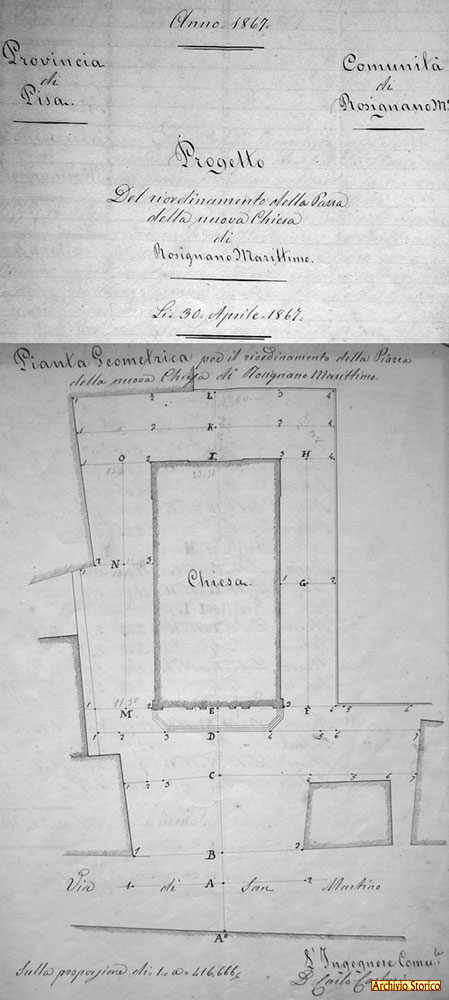 Anno 1867.
Provincia
di
Pisa.
Comunità
di
Rosignano Mo
Progetto
Del riordinamento della Piazza
della nuova Chiesa
di
Rosignano Marittimo.
Li 30. Aprile 1867.
Pianta Geometrica ped il riordinamento della Piazza
della nuova Chiesa di Rosignano Marittimo.
2 L 3 4
1 2 K 3 4
O 1 2 I 3 H 4
1 N 3
Chiesa
1 G 2
1 M 2 E 3 F 4 5 6
1 2 3 D 4 5 6 7
1 2 3 C 4 5 6
1 B 2
1 A 2
Via di San Martino
A°
Sulla proporzione di 1. a 416,666
L'Ingegnere Comu.le
D. Carlo
Archivio Storico